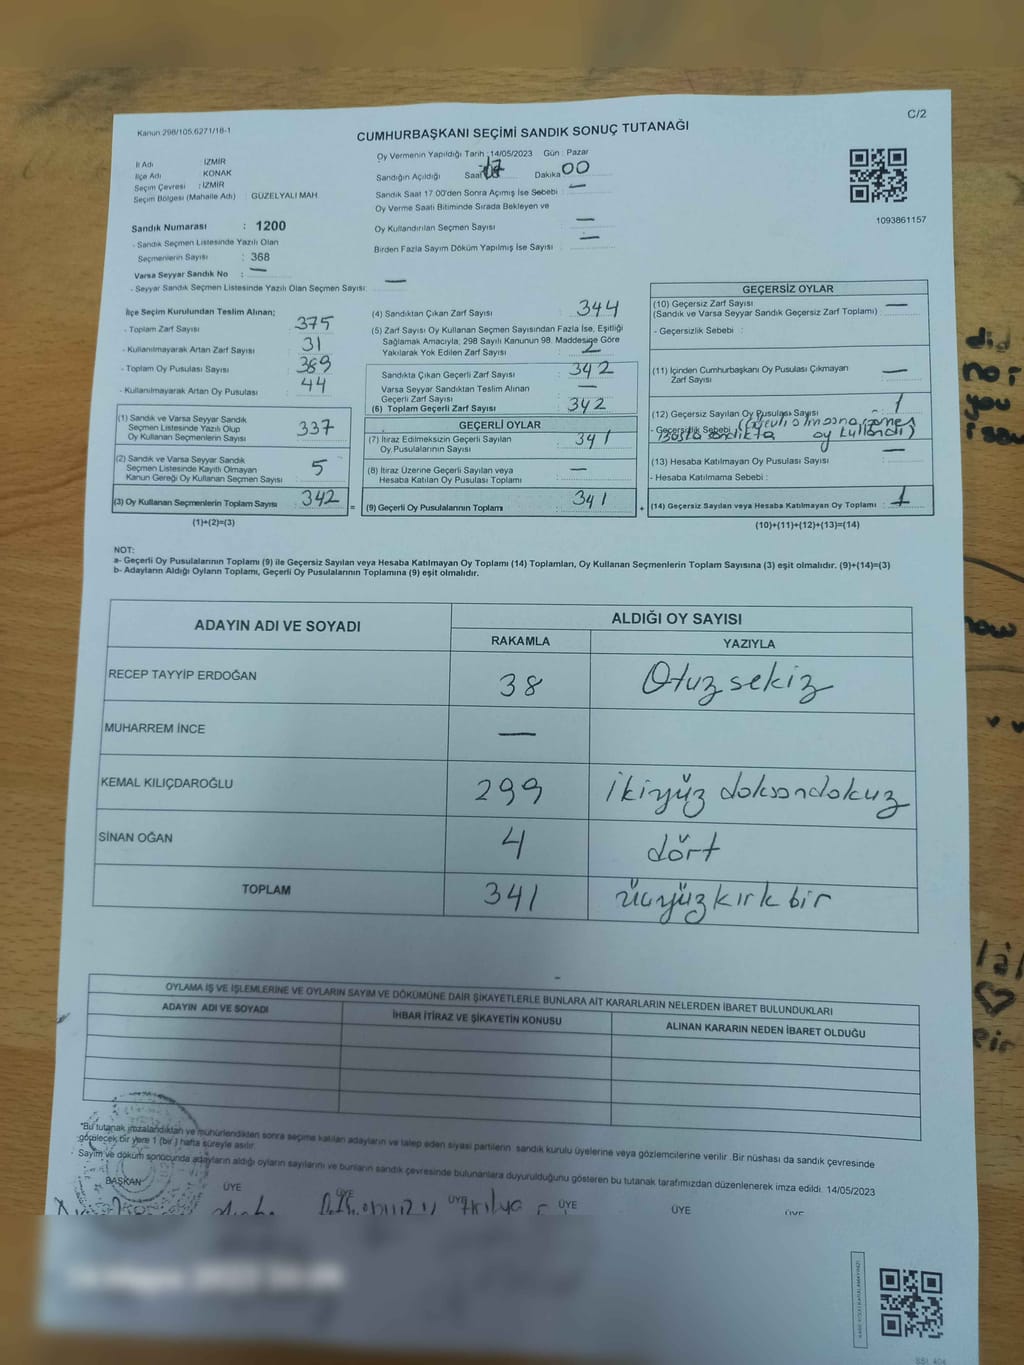 C/2
Kanun 298/105,6271/18-1
CUMHURBAŞKANI SEÇİMİ SANDIK SONUÇ TUTANAĞI
İl Adı İZMİR
İlçe Adı KONAK
Seçim Çevresi : İZMİR
Seçim Bölgesi (Mahalle Adı) : GÜZELYALI MAH.
Oy Vermenin Yapıldığı Tarih :14/05/2023 Gün : Pazar
Sandığın Açıldığı Saat 17 Dakika 00
Sandık Saat 17.00'den Sonra Açımış İse Sebebi : —
Oy Verme Saati Bitiminde Sırada Bekleyen ve
Oy Kullandırılan Seçmen Sayısı —
Birden Fazla Sayım Döküm Yapılmış İse Sayısı —
1093861157
Sandık Numarası : 1200
- Sandık Seçmen Listesinde Yazılı Olan
Seçmenlerin Sayısı : 368
Varsa Seyyar Sandık No : —
- Seyyar Sandık Seçmen Listesinde Yazılı Olan Seçmen Sayısı: —
İlçe Seçim Kurulundan Teslim Alınan;
- Toplam Zarf Sayısı 375
- Kullanılmayarak Artan Zarf Sayısı 31
- Toplam Oy Pusulası Sayısı 389
- Kullanılmayarak Artan Oy Pusulası 44
(1) Sandık ve Varsa Seyyar Sandık
Seçmen Listesinde Yazılı Olup
Oy Kullanan Seçmenlerin Sayısı 337
(2) Sandık ve Varsa Seyyar Sandık
Seçmen Listesinde Kayıtlı Olmayan
Kanun Gereği Oy Kullanan Seçmen Sayısı 5
(3) Oy Kullanan Seçmenlerin Toplam Sayısı 342 =
(1)+(2)=(3)
(4) Sandıktan Çıkan Zarf Sayısı 344
(5) Zarf Sayısı Oy Kullanan Seçmen Sayısından Fazla İse, Eşitliği
Sağlamak Amacıyla, 298 Sayılı Kanunun 98. Maddesine Göre
Yakılarak Yok Edilen Zarf Sayısı 2
Sandıkta Çıkan Geçerli Zarf Sayısı : 342
Varsa Seyyar Sandıktan Teslim Alınan
Geçerli Zarf Sayısı —
(6) Toplam Geçerli Zarf Sayısı : 342
GEÇERLİ OYLAR
(7) İtiraz Edilmeksizin Geçerli Sayılan
Oy Pusulalarının Sayısı : 341
(8) İtiraz Üzerine Geçerli Sayılan veya
Hesaba Katılan Oy Pusulası Toplamı : —
(9) Geçerli Oy Pusulalarının Toplamı : 341 +
GEÇERSİZ OYLAR
(10) Geçersiz Zarf Sayısı —
(Sandık ve Varsa Seyyar Sandık Geçersiz Zarf Toplamı)
- Geçersizlik Sebebi :
(11) İçinden Cumhurbaşkanı Oy Pusulası Çıkmayan
Zarf Sayısı —
(12) Geçersiz Sayılan Oy Pusulası Sayısı : 1
- Geçersizlik Sebebi
Başka sandıkta oy kullandı)
(13) Hesaba Katılmayan Oy Pusulası Sayısı —
- Hesaba Katılmama Sebebi :
(14) Geçersiz Sayılan veya Hesaba Katılmayan Oy Toplamı : 1
(10)+(11)+(12)+(13)=(14)
NOT:
a- Geçerli Oy Pusulalarının Toplamı (9) ile Geçersiz Sayılan veya Hesaba Katılmayan Oy Toplamı (14) Toplamları, Oy Kullanan Seçmenlerin Toplam Sayısına (3) eşit olmalıdır. (9)+(14)=(3)
b- Adayların Aldığı Oyların Toplamı, Geçerli Oy Pusulalarının Toplamına (9) eşit olmalıdır.
ADAYIN ADI VE SOYADI
ALDIĞI OY SAYISI
RAKAMLA YAZIYLA
RECEP TAYYİP ERDOĞAN 38 Otuzsekiz
MUHARREM İNCE —
KEMAL KILIÇDAROĞLU 299 ikiyüz doksandokuz
SİNAN OĞAN 4 dört
TOPLAM 341 üçyüzkırk bir
OYLAMA İŞ VE İŞLEMLERİNE VE OYLARIN SAYIM VE DÖKÜMÜNE DAİR ŞİKAYETLERLE BUNLARA AİT KARARLARIN NELERDEN İBARET BULUNDUKLARI
ADAYIN ADI VE SOYADI İHBAR İTİRAZ VE ŞİKAYETİN KONUSU ALINAN KARARIN NEDEN İBARET OLDUĞU
"Bu tutanak imzalandıktan ve mühürlendikten sonra seçime katılan adayların ve talep eden siyasi partilerin sandık kurulu üyelerine veya gözlemcilerine verilir .Bir nüshası da sandık çevresinde
görülecek bir yere 1 (bir ) hafta süreyle asılır.
Sayım ve döküm sonucunda adayların aldığı oyların sayılarını ve bunların sandık çevresinde bulunanlara duyurulduğunu gösteren bu tutanak tarafımızdan düzenlenerek imza edildi. 14/05/2023
BAŞKAN ÜYE ÜYE ÜYE ÜYE ÜYE ÜYE
did
not
you
i saw
now